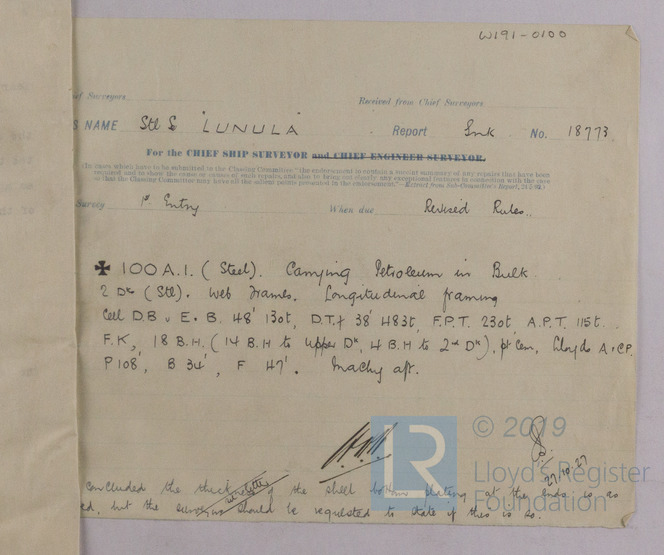 W191-0100
ef Surveyors
Received from Chief Surveyors
S NAME Stl S "LUNULA" Report Snk No. 18773
For the CHIEF SHIP SURVEYOR and CHIEF ENGINEER SURVEYOR.
(In cases which have to be submitted to the Classing Committee "the endorsement to contain a concise summary of any repairs that have been
required and to show the cause or causes of such repairs, and also to bring out clearly any exceptional features in connection with the case
so that the Classing Committee may have all the salient points presented in the endorsement."—Extract from Sub-Committee's Report,
Survey 1st Entry When due Revised Rules.
✠ 100 A.1. (Steel). Carrying Petroleum in Bulk
2 Dks (Stl). Web frames. Longitudinal framing
Cell D.B. u E. B. 48' 130t, D.T.f 38' 483t, F.P.T. 230t, A.P.T. 115t.
F.K, 18 B.H. (14 B.H to upper Dk, 4 B.H to 2nd Dk), pt Cem, Lloyds A & CP.
P 108', B 34', F 47'. Machy aft.
© 2019
LR
27.10.27
Lloyd's Register
Foundation
concluded the thick of the shell bottom plating at the ends is as
ed, but the surveyors should be requested to state if this is so.